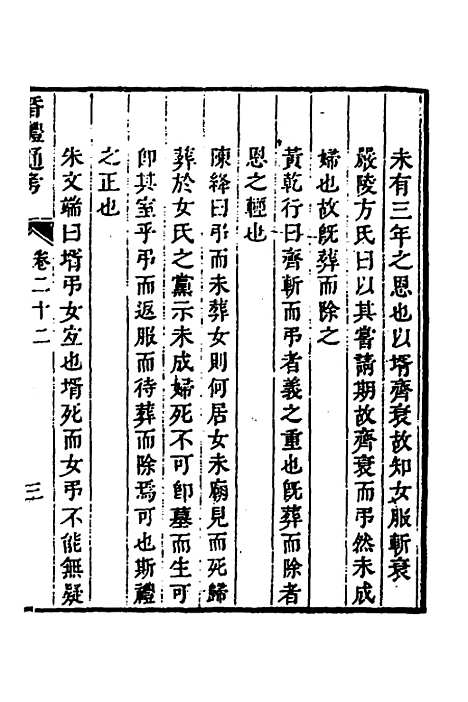 未有三年之恩也以壻齊衰故知女服斬衰
嚴陵方氏曰以其嘗請期故齊衰而弔然未成
婦也故旣葬而除之
黃乾行曰齊斬而弔者義之重也旣葬而除者
恩之輕也
陳絳曰弔而未葬女則何居女未廟見而死歸
葬於女氏之黨示未成婦死不可卽墓而生可
卽其室乎弔而返服而待葬而除焉可也斯禮
之正也
朱文端曰壻弔女宜也壻死而女弔不能無疑
昏禮通考
卷二十二
三